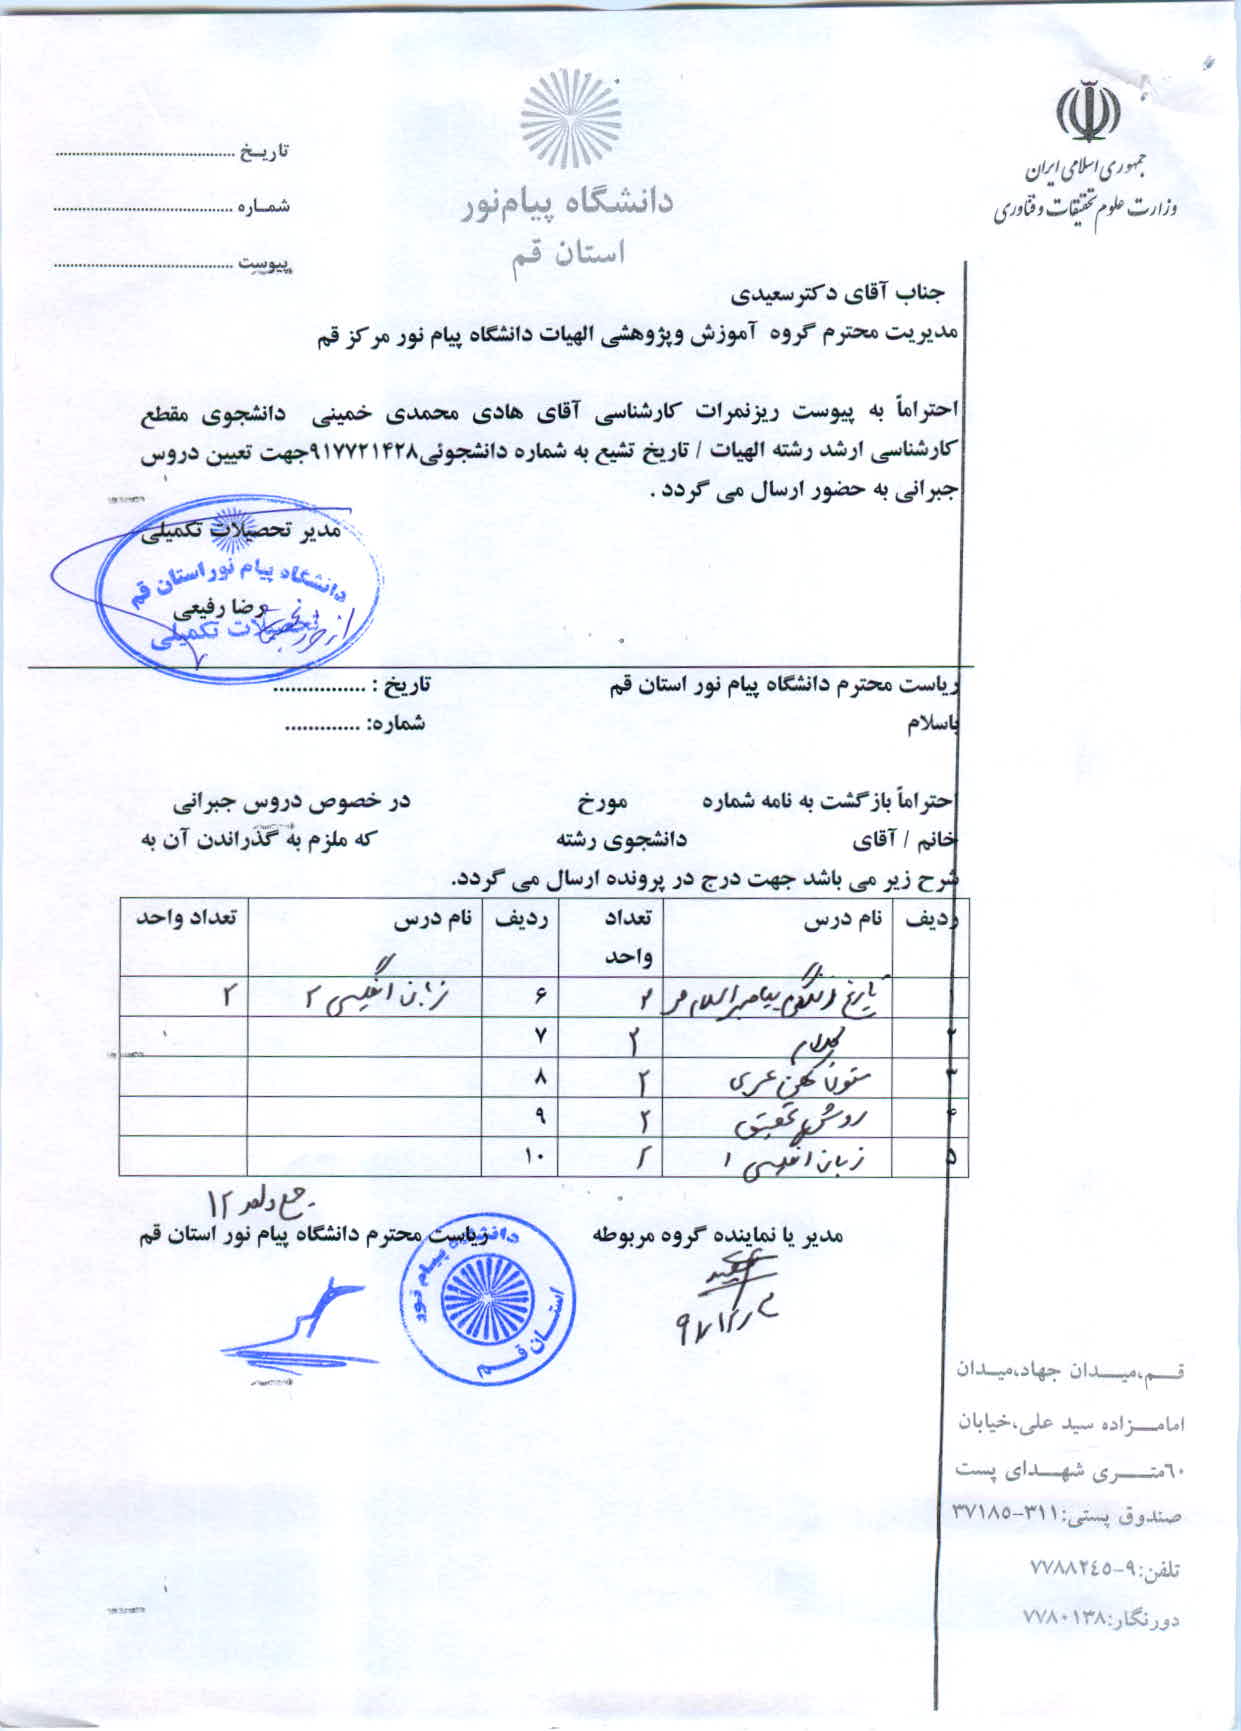 جمهوری اسلامی ایران
وزارت علوم تحقیقات و فناوری
دانشگاه پیام‌نور
استان قم
تاریـخ ..........................................
شمـاره ..........................................
پیوست ..........................................
جناب آقای دکترسعیدی
مدیریت محترم گروه آموزش وپژوهشی الهیات دانشگاه پیام نور مرکز قم
احتراماً به پیوست ریزنمرات کارشناسی آقای هادی محمدی خمینی دانشجوی مقطع
کارشناسی ارشد رشته الهیات / تاریخ تشیع به شماره دانشجوئی۹۱۷۷۲۱۴۲۸جهت تعیین دروس
جبرانی به حضور ارسال می گردد .
مدیر تحصیلات تکمیلی
دانشگاه پیام نور استان قم
رضا رفیعی
تحصیلات تکمیلی
ریاست محترم دانشگاه پیام نور استان قم تاریخ : ................
باسلام شماره: .............
احتراماً بازگشت به نامه شماره مورخ در خصوص دروس جبرانی
خانم / آقای دانشجوی رشته که ملزم به گذراندن آن به
شرح زیر می باشد جهت درج در پرونده ارسال می گردد.
ردیف نام درس تعداد واحد ردیف نام درس تعداد واحد
تاریخ زندگی پیامبر اسلام ۲ ۶ زبان انگلیسی ۲ ۲
۲ کلام ۲ ۷
۳ متون کهن عربی ۲ ۸
۴ روش تحقیق ۲ ۹
۵ زبان انگلیسی ۱ ۲ ۱۰
جمع واحد ۱۲
مدیر یا نماینده گروه مربوطه ریاست محترم دانشگاه پیام نور استان قم
دانشگاه پیام نور
استـان قـم
قـــم،میـــدان جهاد،میـدان
امامـــزاده سید علی،خیابان
٦٠متـــری شهـــدای پست
صندوق پستی:۳۱۱-۳۷۱۸۵
تلفن:۹-۷۷۸۸۲٤٥
دورنگار:۷۷۸۰۱۳۸